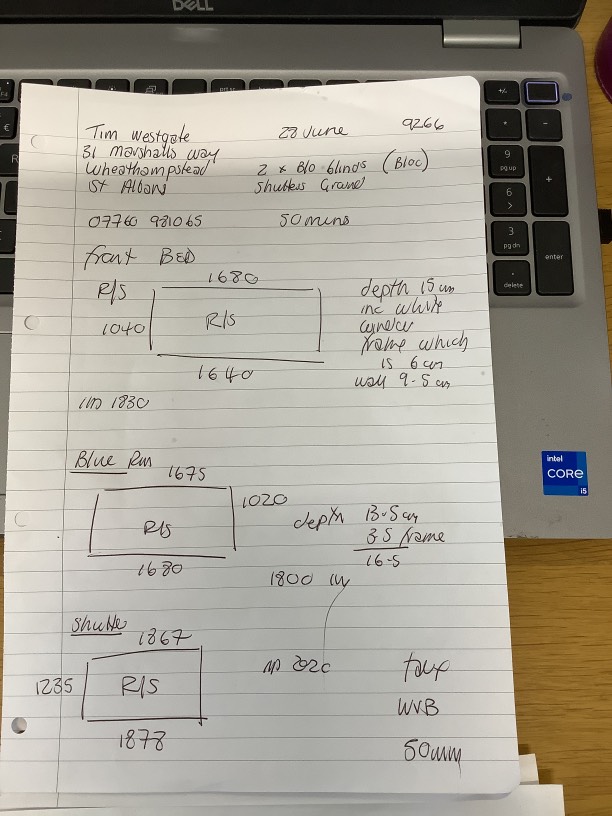 DELL
Tim Westgate 28 June 9266
31 Marshalls Way
Wheathampstead 2 x Blo blinds (Bloc)
St Albans Shutters Ground
07760 981065 50 mins
front BED
R/S 1680
1040 R/S
1640
depth 15 cm
inc white
frame which
is 6 cm
wall 9.5 cm
1830
Blue Rm
1675
R/S 1020
1680
depth 13.5 cm
3.5 frame
16.5
1800
Shutter
1867
1235 R/S
1878
2020
WVB
50mm
+/-
*
-
9
pg up
+
6
>
3
pg dn
enter
.
delete
intel
CORE
i5